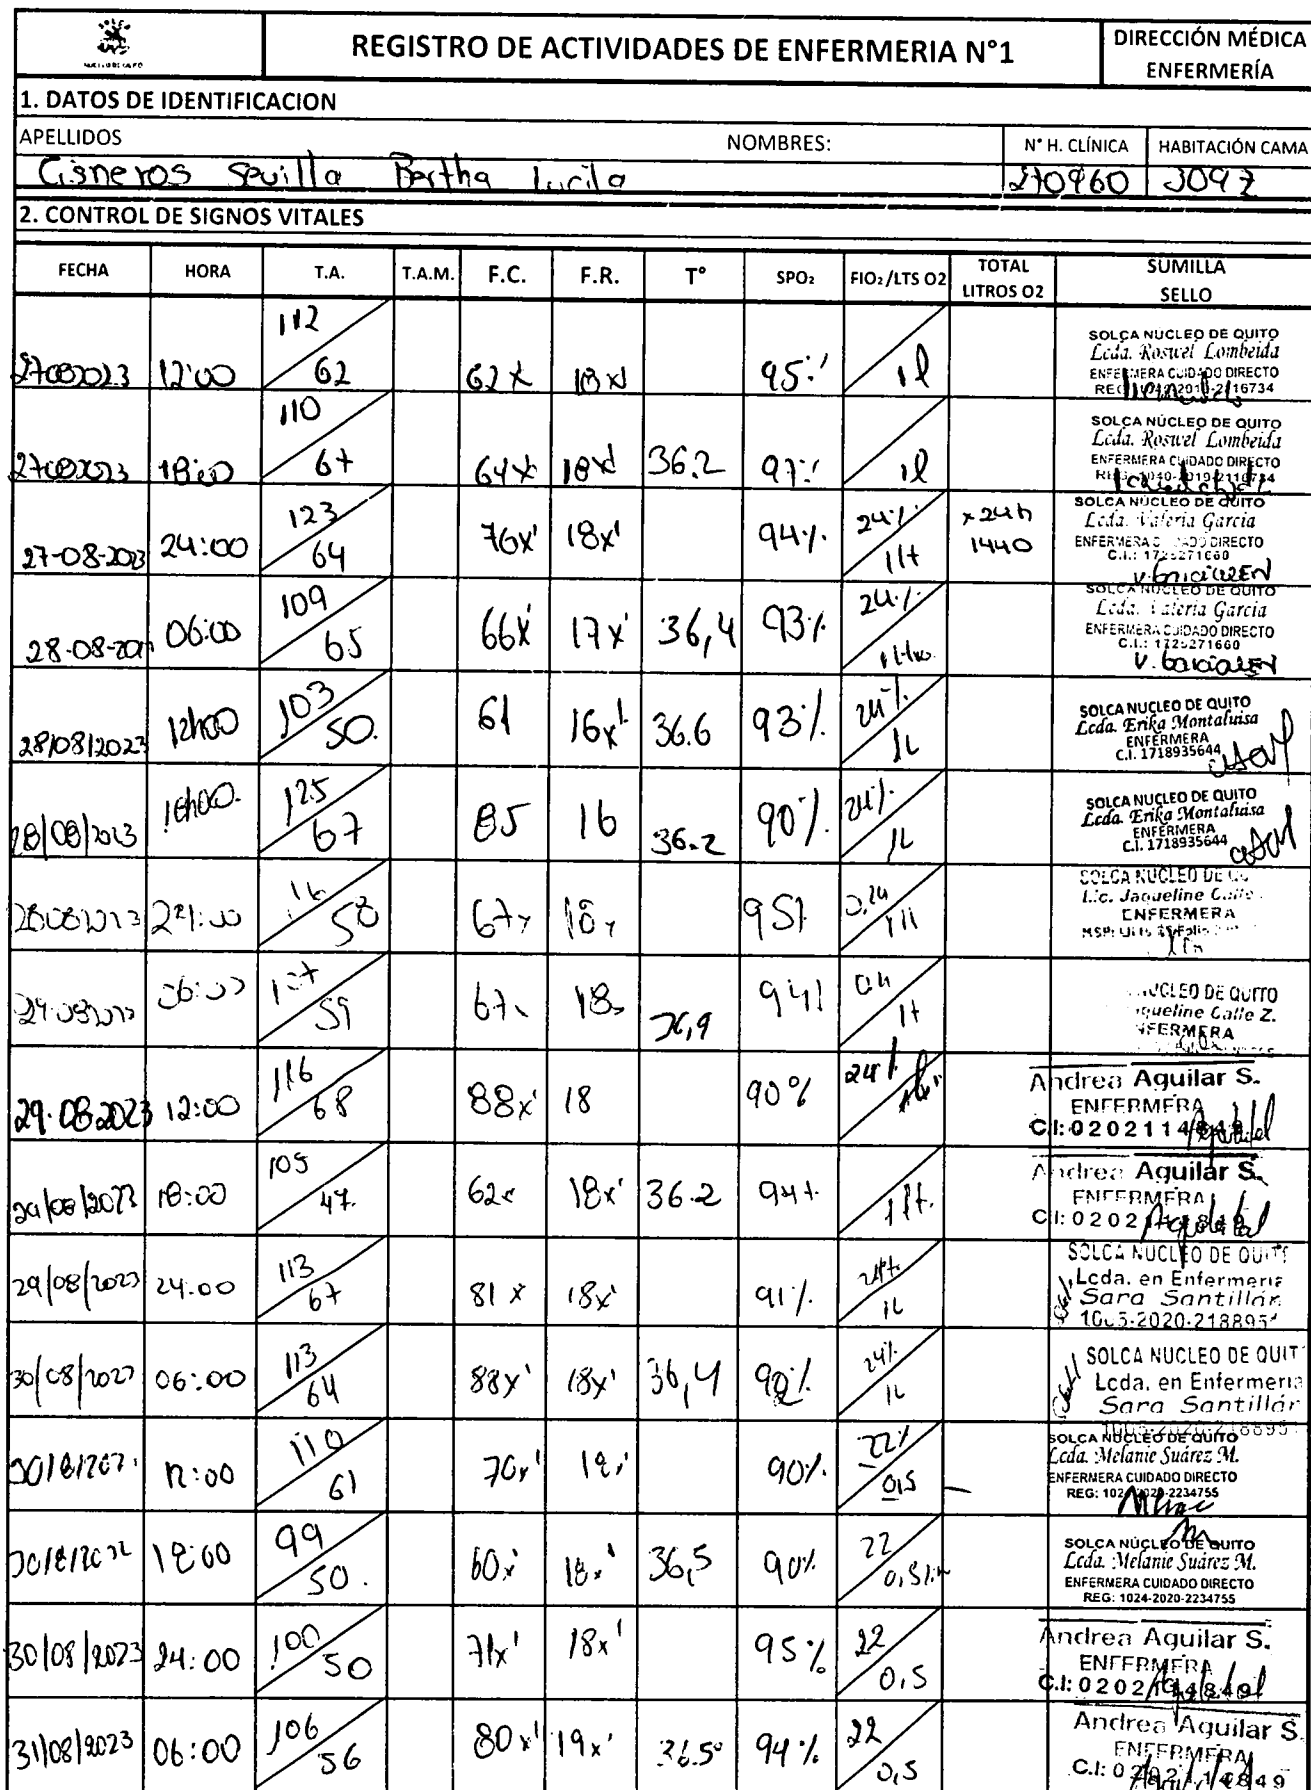 REGISTRO DE ACTIVIDADES DE ENFERMERIA N°1
DIRECCIÓN MÉDICA
ENFERMERÍA
1. DATOS DE IDENTIFICACION
APELLIDOS NOMBRES: N° H. CLÍNICA HABITACIÓN CAMA
Cisneros Sevilla Bertha Lucila 270960 309 2
2. CONTROL DE SIGNOS VITALES
FECHA HORA T.A. T.A.M. F.C. F.R. T° SPO₂ FIO₂/LTS O2 TOTAL LITROS O2 SUMILLA SELLO
27082023 12:00 112/62 62x 18x' 95% 1l
SOLCA NUCLEO DE QUITO
Lcda. Roswel Lombeida
ENFERMERA CUIDADO DIRECTO
27082023 18:00 110/67 64x 18x' 36.2 97% 1l
SOLCA NÚCLEO DE QUITO
Lcda. Roswel Lombeida
ENFERMERA CUIDADO DIRECTO
27-08-2023 24:00 123/64 76x' 18x' 94% 24%/1lt x24h 1440
SOLCA NUCLEO DE QUITO
Lcda. Valeria Garcia
ENFERMERA DIRECTO
C.I.: 1725271660
28-08-20 06:00 109/65 66x' 17x' 36,4 93% 24%
SOLCA NUCLEO DE QUITO
Lcda. Valeria Garcia
ENFERMERA CUIDADO DIRECTO
C.I.: 1725271660
28/08/2023 12h00 103/50. 61 16x' 36.6 93% 24%/1L
SOLCA NUCLEO DE QUITO
Lcda. Erika Montaluisa
ENFERMERA
C.I. 1718935644
28/08/2023 125/67 85 16 36.2 90% 24%/1L
SOLCA NUCLEO DE QUITO
Lcda. Erika Montaluisa
ENFERMERA
C.I. 1718935644
28082023 58 67x 18x 95% 0.24
SOLCA NUCLEO DE
Lic. Jaqueline Calle
ENFERMERA
29.08 06:00 59 67x 18x 36,9 94% 1lt
NUCLEO DE QUITO
Calle Z.
ENFERMERA
29.08.2023 12:00 116/68 88x' 18 90% 24%
Andrea Aguilar S.
ENFERMERA
C.I: 0202114849
29/08/2023 18:00 105/47. 62x 18x' 36.2 94% 1lt.
Andrea Aguilar S.
ENFERMERA
29/08/2023 24:00 113/67 81x 18x' 91% 24%/1L
SOLCA NUCLEO DE QUITO
Lcda. en Enfermeria
Sara Santillán
30/08/2023 06:00 113/64 88x' 18x' 36,4 24%/1L
SOLCA NUCLEO DE QUIT
Lcda. en Enfermeria
Sara Santillán
12:00 110/61 70x' 90% 22%/0,5
SOLCA NÚCLEO DE QUITO
Lcda. Melanie Suárez M.
ENFERMERA CUIDADO DIRECTO
REG: 1024-2020-2234755
18:00 99/50. 60x' 18x' 36,5 90% 22/0,5
SOLCA NÚCLEO DE QUITO
Lcda. Melanie Suárez M.
ENFERMERA CUIDADO DIRECTO
REG: 1024-2020-2234755
30/08/2023 24:00 100/50 71x' 18x' 95% 22/0,5
Andrea Aguilar S.
ENFERMERA
31/08/2023 06:00 106/56 80x' 19x' 36.5° 94% 22/0,5
Andrea Aguilar S
ENFERMERA